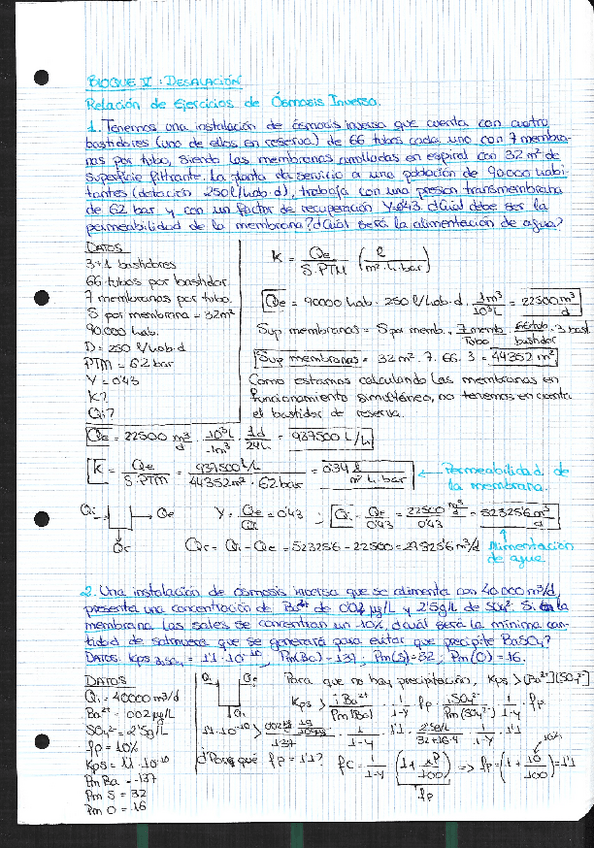 BLOQUE II: DESALACIÓN
Relación de Ejercicios de Ósmosis Inversa.
1. Tenemos una instalación de ósmosis inversa que cuenta con cuatro
bastidores (uno de ellos en reserva) de 66 tubos cada uno con 7 membra-
nas por tubo, siendo las membranas arrolladas en espiral con 32 m² de
superficie filtrante. La planta da servicio a una población de 90000 habi-
tantes (dotación 250 l/hab·d), trabaja con una presion transmembrana
de 62 bar y con un factor de recuperación Y=0'43. ¿Cuál debe ser la
permeabilidad de la membrana? ¿Cuál será la alimentación de agua?
DATOS
3+1 bastidores
66 tubos por bastidor
7 membranas por tubo.
S por membrana = 32m²
90.000 hab.
D = 250 l/hab·d
PTM = 62 bar
Y = 0'43
K?
Qi?
K = Qe / S·PTM (l / m²·h·bar)
Qe = 90000 hab · 250 l/hab·d · 1m³/10³L = 22500 m³/d
Sup membranas = S por memb. · 7 memb/Tubo · 66 tub/bastidor · 3 bast.
Sup membranas = 32m² · 7 · 66 · 3 = 44352 m²
Como estamos calculando las membranas en
funcionamiento simultáneo, no tenemos en cuenta
el bastidor de reserva.
Qe = 22500 m³/d · 10³L/1m³ · 1d/24h = 937500 L/h
K = Qe / S·PTM = 937500 L/h / 44352m² · 62bar = 0'34 l / m²·h·bar ← Permeabilidad de
la membrana.
Qi → → Qe
Qr
Y = Qe/Qi = 0'43 ; Qi = Qe/0'43 = 22500/0'43 m³/d = 52325'6 m³/d
Qr = Qi - Qe = 52325'6 - 22500 = 29825'6 m³/d
Alimentación
de agua
2. Una instalación de ósmosis inversa que se alimenta con 40000 m³/d,
presenta una concentración de Ba²⁺ de 0'02 µg/L y 2'5g/L de SO₄²⁻. Si en la
membrana las sales se concentran un 10%, ¿cuál será la mínima can-
tidad de salmuera que se generará para evitar que precipite BaSO₄?
DATOS: Kps BaSO₄ = 1'1·10⁻¹⁰, Pm(Ba) = 137, Pm(S)=32, Pm(O)=16.
DATOS
Qi = 40000 m³/d
Ba²⁺ = 0'02 µg/L
SO₄²⁻ = 2'5g/L
fp = 10%
Kps = 1'1·10⁻¹⁰
Pm Ba = 137
Pm S = 32
Pm O = 16
Qi Qe
Qr
Para que no haya precipitación, Kps > [Ba²⁺][SO₄²⁻]
Kps > iBa²⁺/Pm(Ba) · 1/1-Y · fp · iSO₄²⁻/Pm(SO₄²⁻) · 1/1-Y · fp
¿Por qué fp = 1'1? fc = 1/1-Y (1 + xP/100) => fp = (1 + 10/100) = 1'1
10%
fp